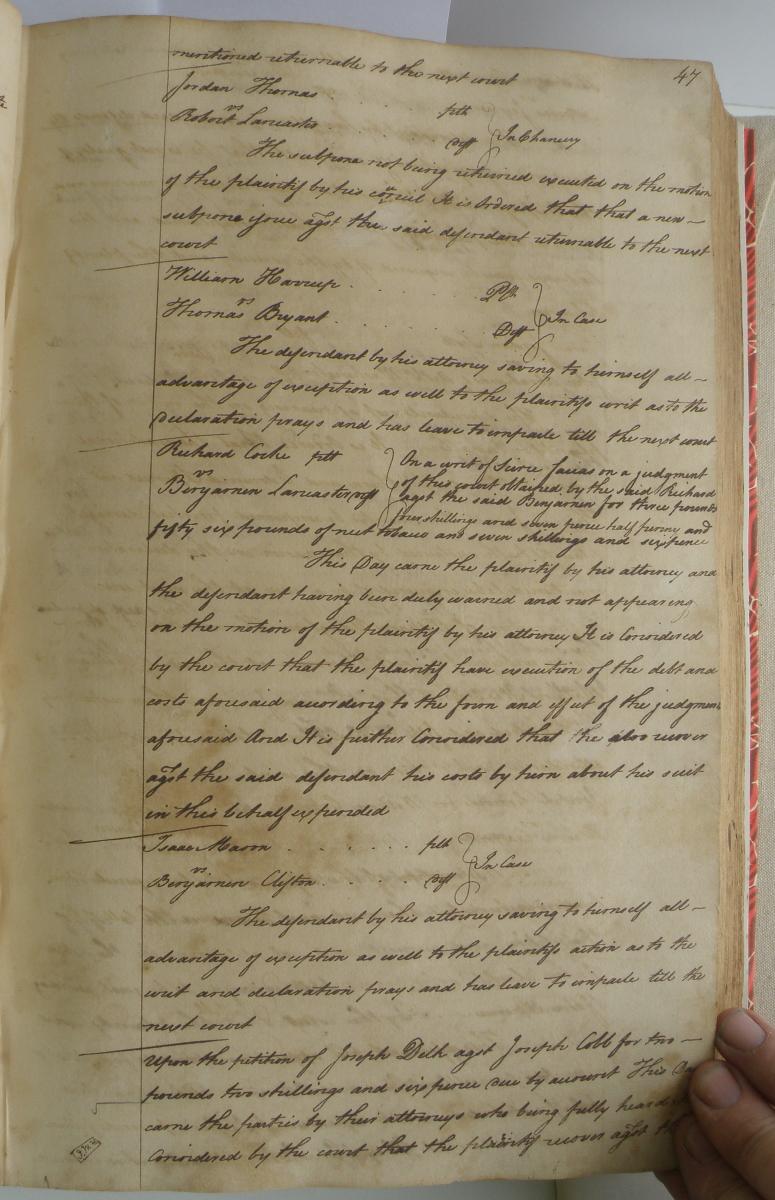 47
mentioned returnable to the next court
Jordan Thomas . . . . plt
vs
Robert Lancaster . . . . Deft } In Chancery
The subpona not being returned executed on the motion
of the plaintif by his council It is Ordered that that a new
subpone issue agst the said defendant returnable to the next
court
William Harrup . . . . Plt
vs
Thomas Bryant . . . . Deft } In Case
The defendant by his attorney saving to himself all
advantage of exception as well to the plaintifs writ as to the
Declaration prays and has leave to imparle till the next court
Richard Cocke plt
vs
Benjamen Lancaster deft
On a writ of Scire facias on a judgment
of this court obtained by the said Richard
agst the said Benjamen for three pounds
four shillings and seven pence half penny and
fifty six pounds of nett tobaco and seven shillings and sixpence
This Day came the plaintif by his attorney and
the defendant having been duly warned and not appearing
on the motion of the plaintif by his attorney It is Considered
by the court that the plaintif have execution of the debt and
costs aforesaid according to the form and effect of the judgment
aforesaid And It is further Considered that the also recover
agst the said defendant his costs by him about his suit
in this behalf expended
Isaac Mason . . . . plt
vs
Benjamen Clifton . . . . deft } In Case
The defendant by his attorney saving to himself all
advantage of exception as well to the plaintifs action as to the
writ and declaration prays and has leave to imparle till the
next court
Upon the petition of Joseph Delk agst Joseph Cobb for two
pounds two shillings and sixpence due by account This Day
came the parties by their attorneys who being fully heard
Considered by the court that the plaintif recover agst